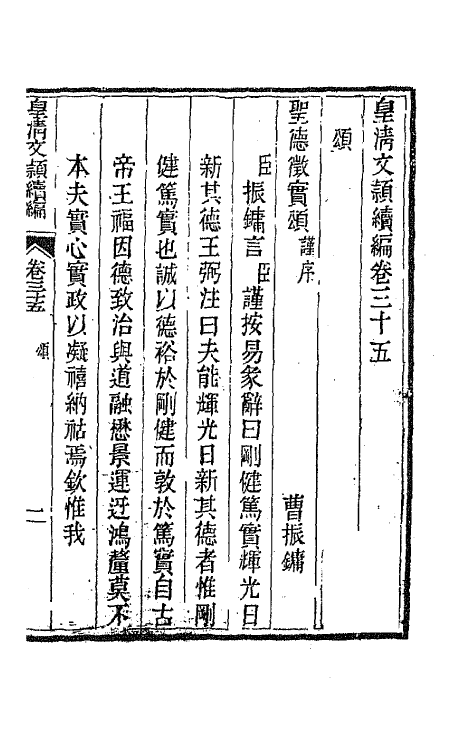 皇清文頴續編卷三十五
頌
聖德徵實頌謹序
曹振鏞
臣振鏞言臣謹按易彖辭曰剛健篤實輝光日
新其德王弼注曰夫能輝光日新其德者惟剛
健篤實也誠以德裕於剛健而敦於篤實自古
帝王福因德致治與道融懋景運迓鴻釐莫不
本夫實心實政以凝禧納祜焉欽惟我
皇清文頴續編
卷三十五
頌
一